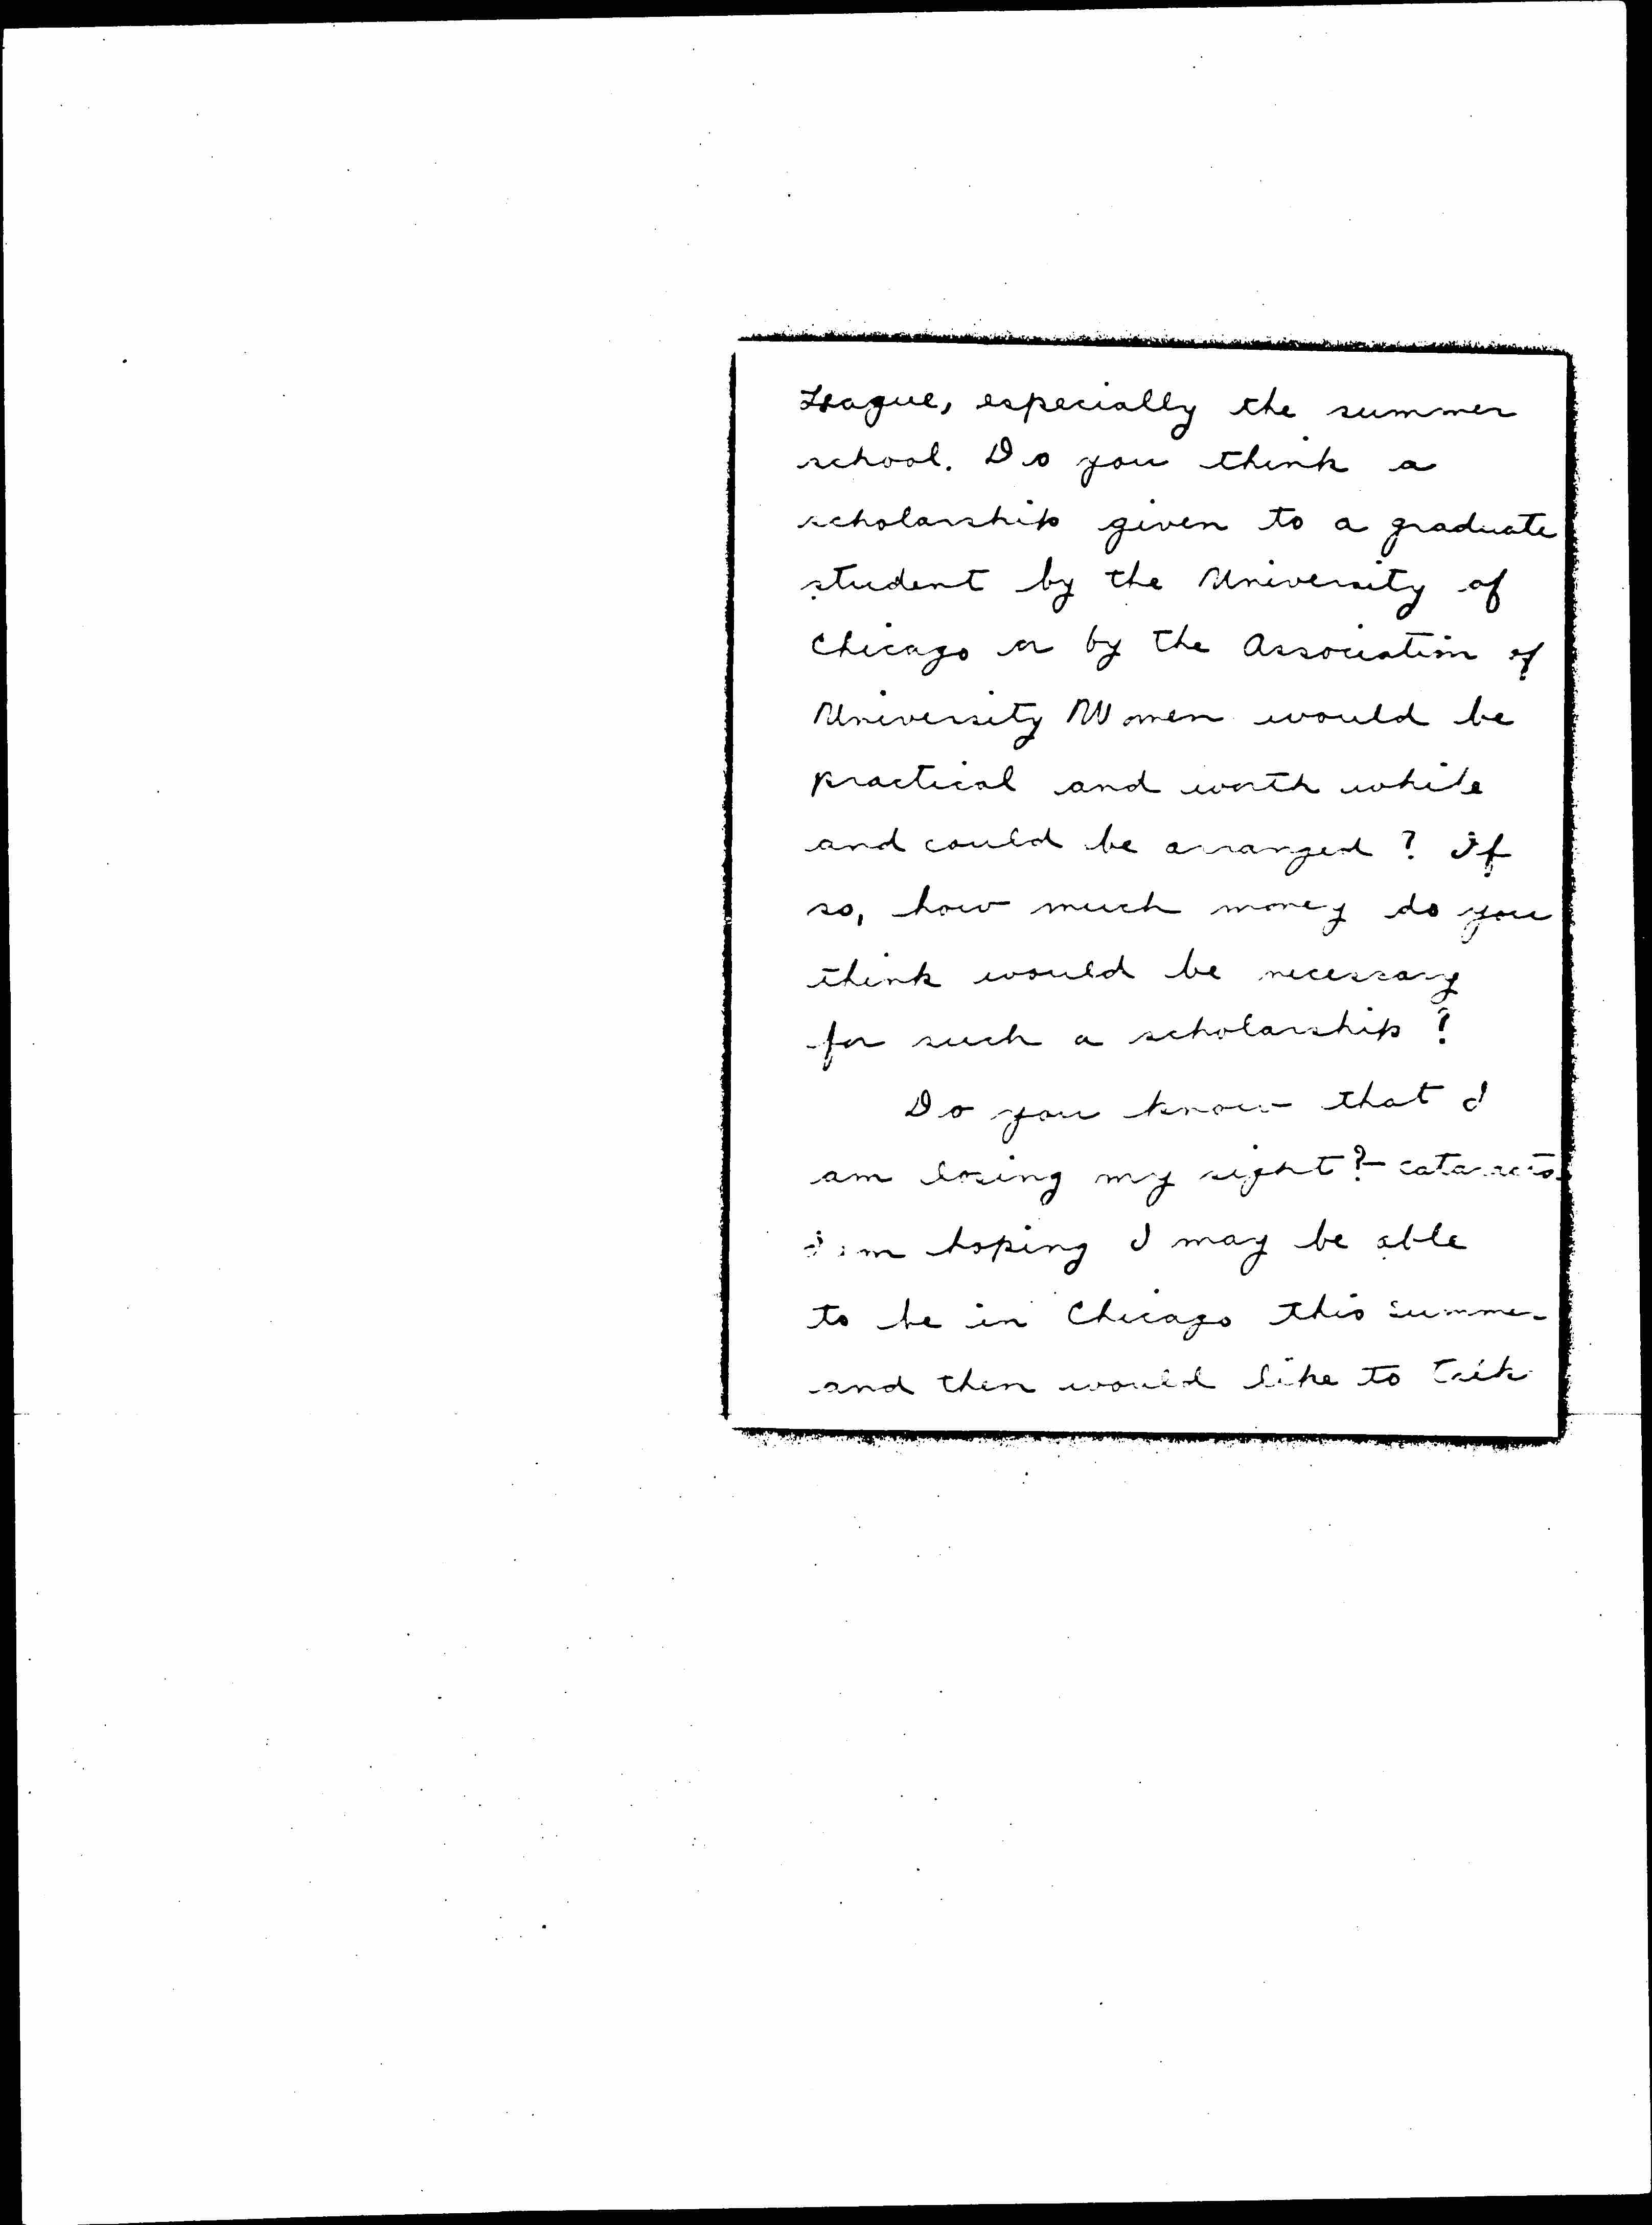 League, especially the summer
school. Do you think a
scholarship given to a graduate
student by the University of
Chicago or by the Association of
University Women would be
practical and worth while
and could be arranged? If
so, how much money do you
think would be necessary
for such a scholarship?
Do you know that I
am losing my sight?- cataracts.
I am hoping I may be able
to be in Chicago this summer
and then would like to talk